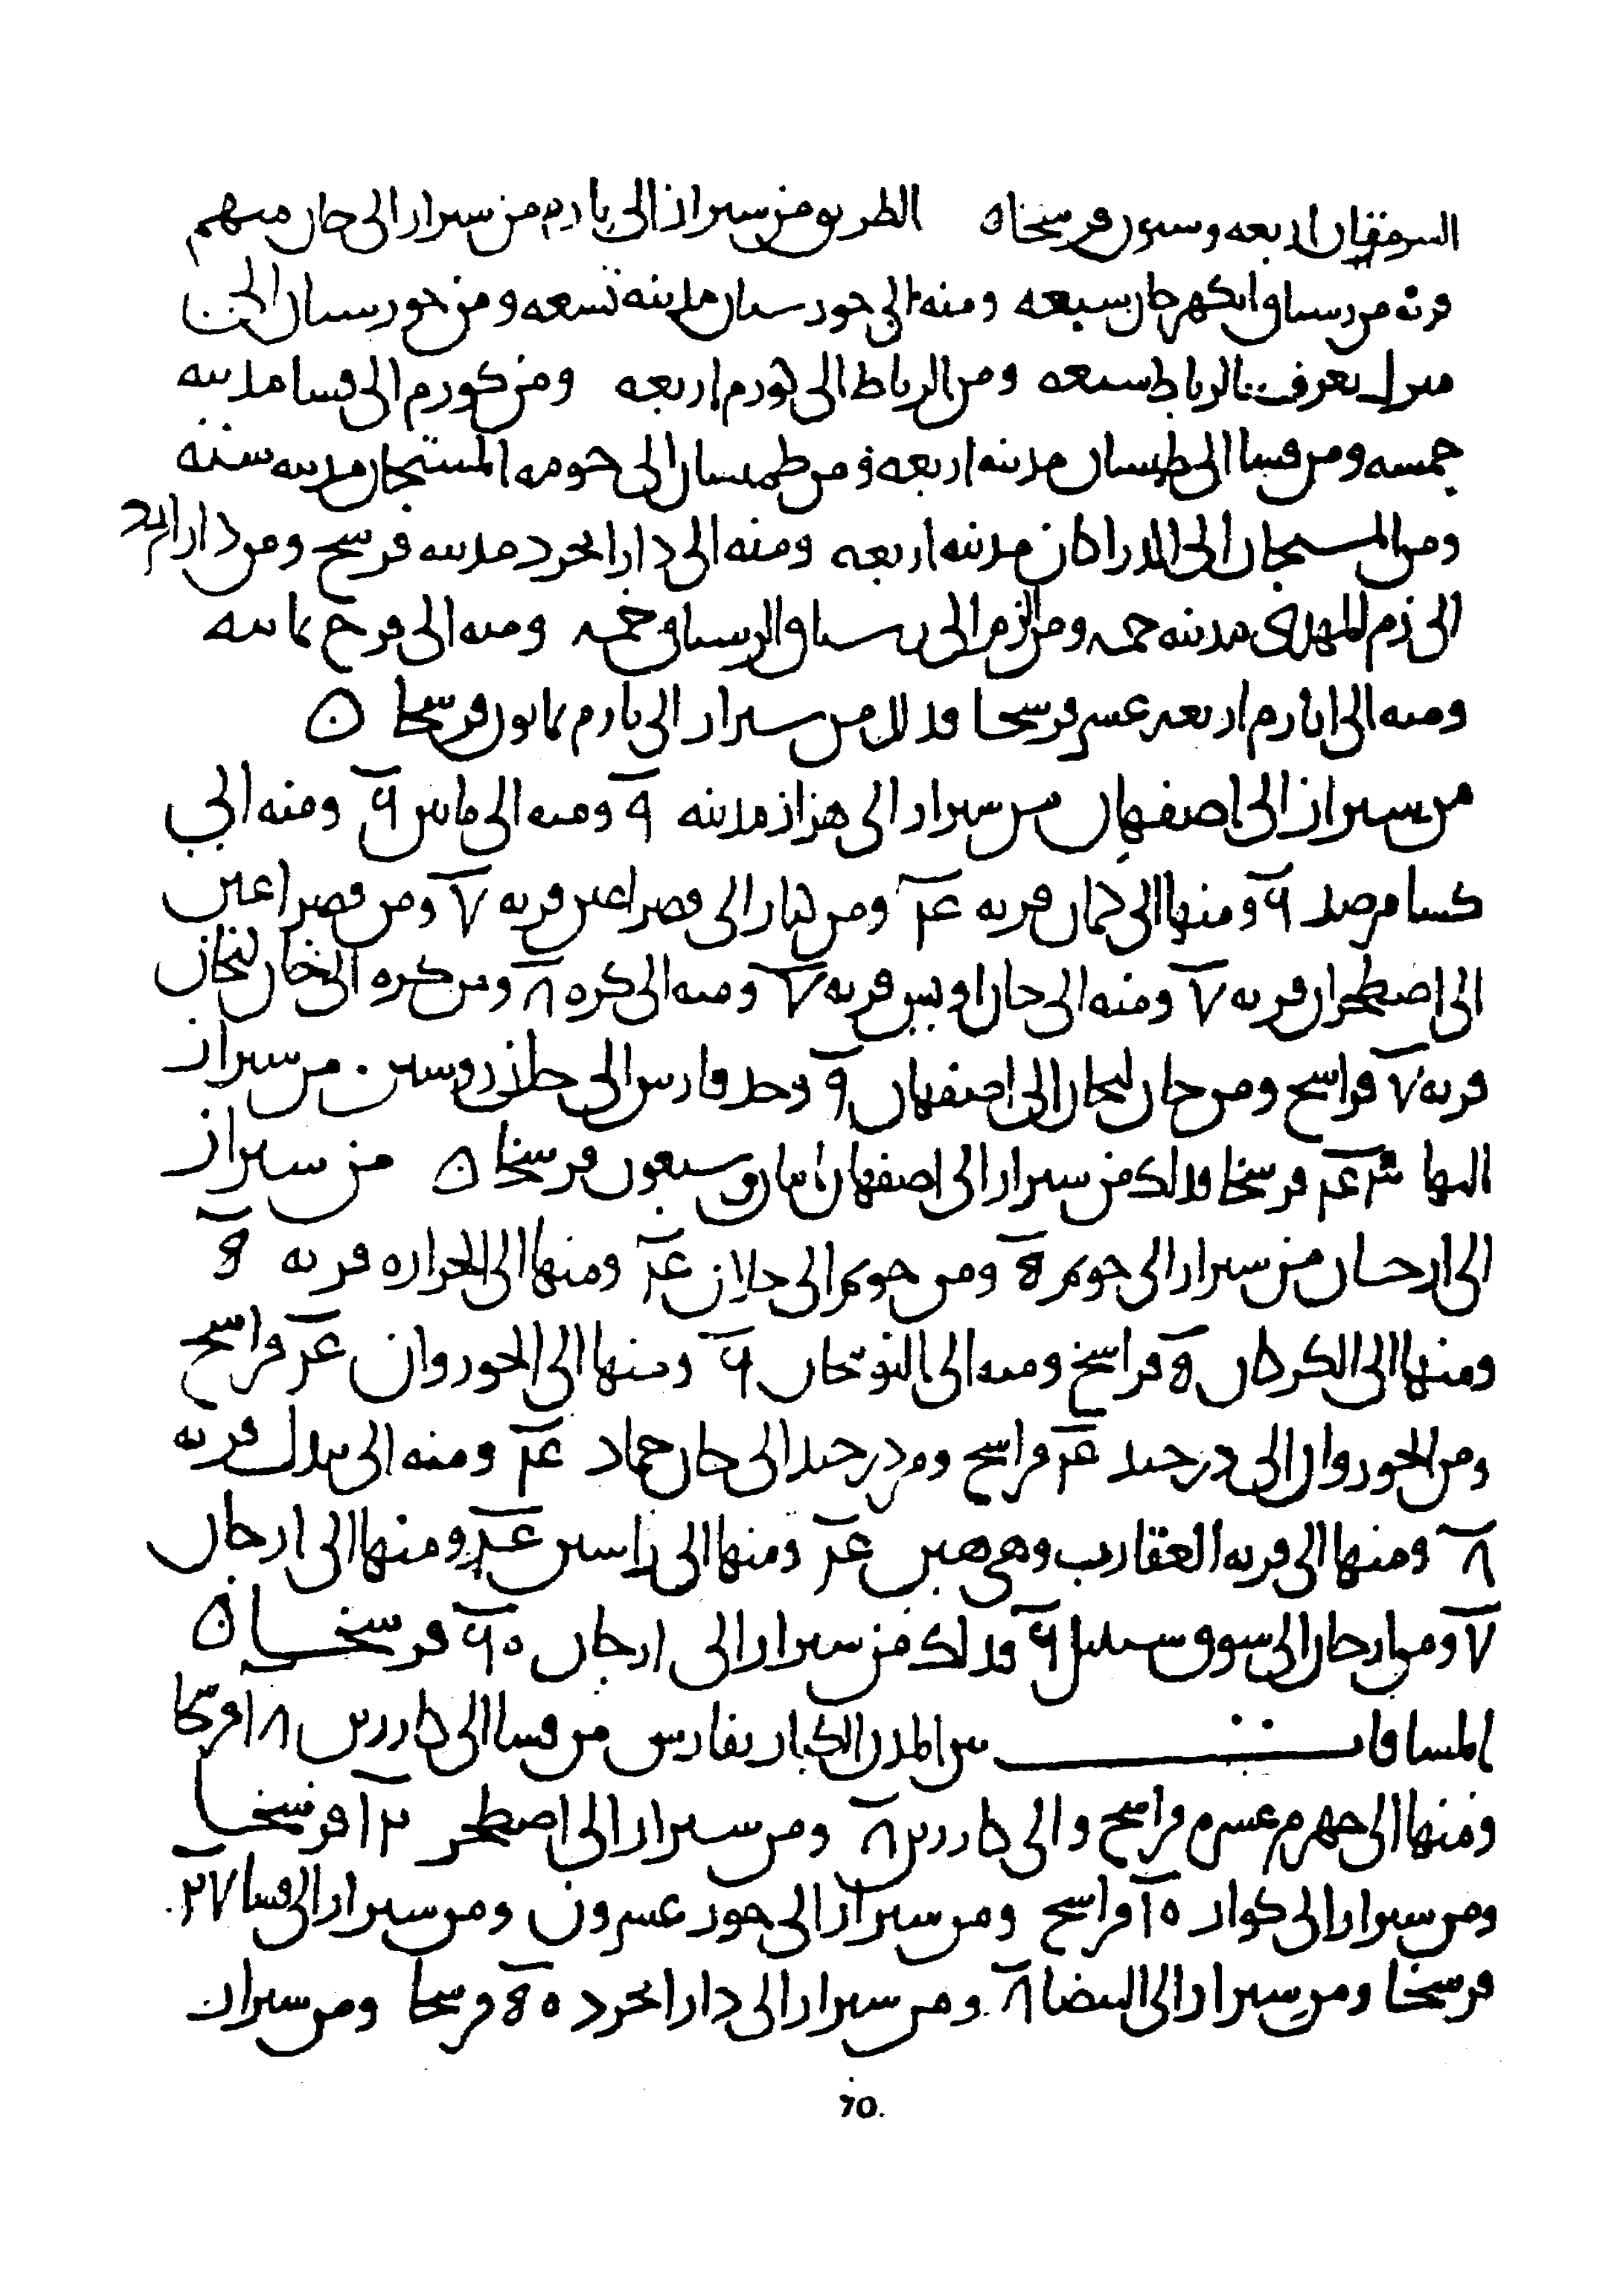 السرمقان اربعه وستون فرسخا ه الطريق من سيراز الى بارم من سيراز الى خان ميهم
قرىه من رستاق الكهرجان سبعه ومنه الى خورستان مدينه تسعه ومن خورستان الى
منزل يعرف بالرباط سبعه ومن الرباط الى كورم اربعه ومن كورم الى فسا مدينه
خمسه ومن فسا الى طمستان مدينه اربعه ومن طمستان الى حومه المستجان مدينه سته
ومن المستجان الى الدراكان مدينه اربعه ومنه الى دارابجرد مدينه فرسخ ومن دارابجرد
الى زم المهدى مدينه خمسه ومن الزم الى رستاق الرستاق خمسه ومنه الى فرج ثمانيه
ومنه الى تارم اربعه عسر فرسخا فذلك من سيراز الى بارم ثمانون فرسخا ه
من سيراز الى اصفهان من سيراز الى هزار مدينه ٩ ومنه الى ماين ٦ ومنه الى
كسا مرصد ٦ ومنها الى كمار قريه ٤ ومن كمار الى قصر اعين قريه ٧ ومن قصر اعين
الى اصطخران قريه ٧ ومنه الى خان اويس قريه ٧ ومنه الى كره ٨ ومن كره الى خان لنجان
قريه ٧ فراسخ ومن خان لنجان الى اصفهان ٩ وحد فارس الى خان روسن من سيراز
اليها فرسخا فذلك من سيراز الى اصفهان اثنان وسبعون فرسخا ه من سيراز
الى ارجان من سيراز الى جويم ٥ ومن جويم الى خلان ٤ ومنها الى الخراره قريه ٥
ومنها الى الكركان ٥ فراسخ ومنه الى النوبنجان ٦ ومنها الى الخوروان ٤ فراسخ
ومن الخوروان الى درخيد ٤ فراسخ ومن درخيد الى خان حماد ٤ ومنه الى بندك قريه
٨ ومنها الى قريه العقارب وهى هير ٤ ومنها الى راسين ٤ ومنها الى ارجان
٧ ومن ارجان الى سوق سنبيل ٦ فذلك من سيراز الى ارجان ٦٠ فرسخا ه
المسافات بين المدن الكبار بفارس من فسا الى كارزين ١٨ فرسخا
ومنها الى جهرم عسره فراسخ والى كارزين ٨ ومن سيراز الى اصطخر ١٢ فرسخا
ومن سيراز الى كوار ١٠ فراسخ ومن سيراز الى جور عسرون ومن سيراز الى فسا ٢٧
فرسخا ومن سيراز الى البيضا ٨ ومن سيراز الى دارابجرد ٥٠ فرسخا ومن سيراز
70.